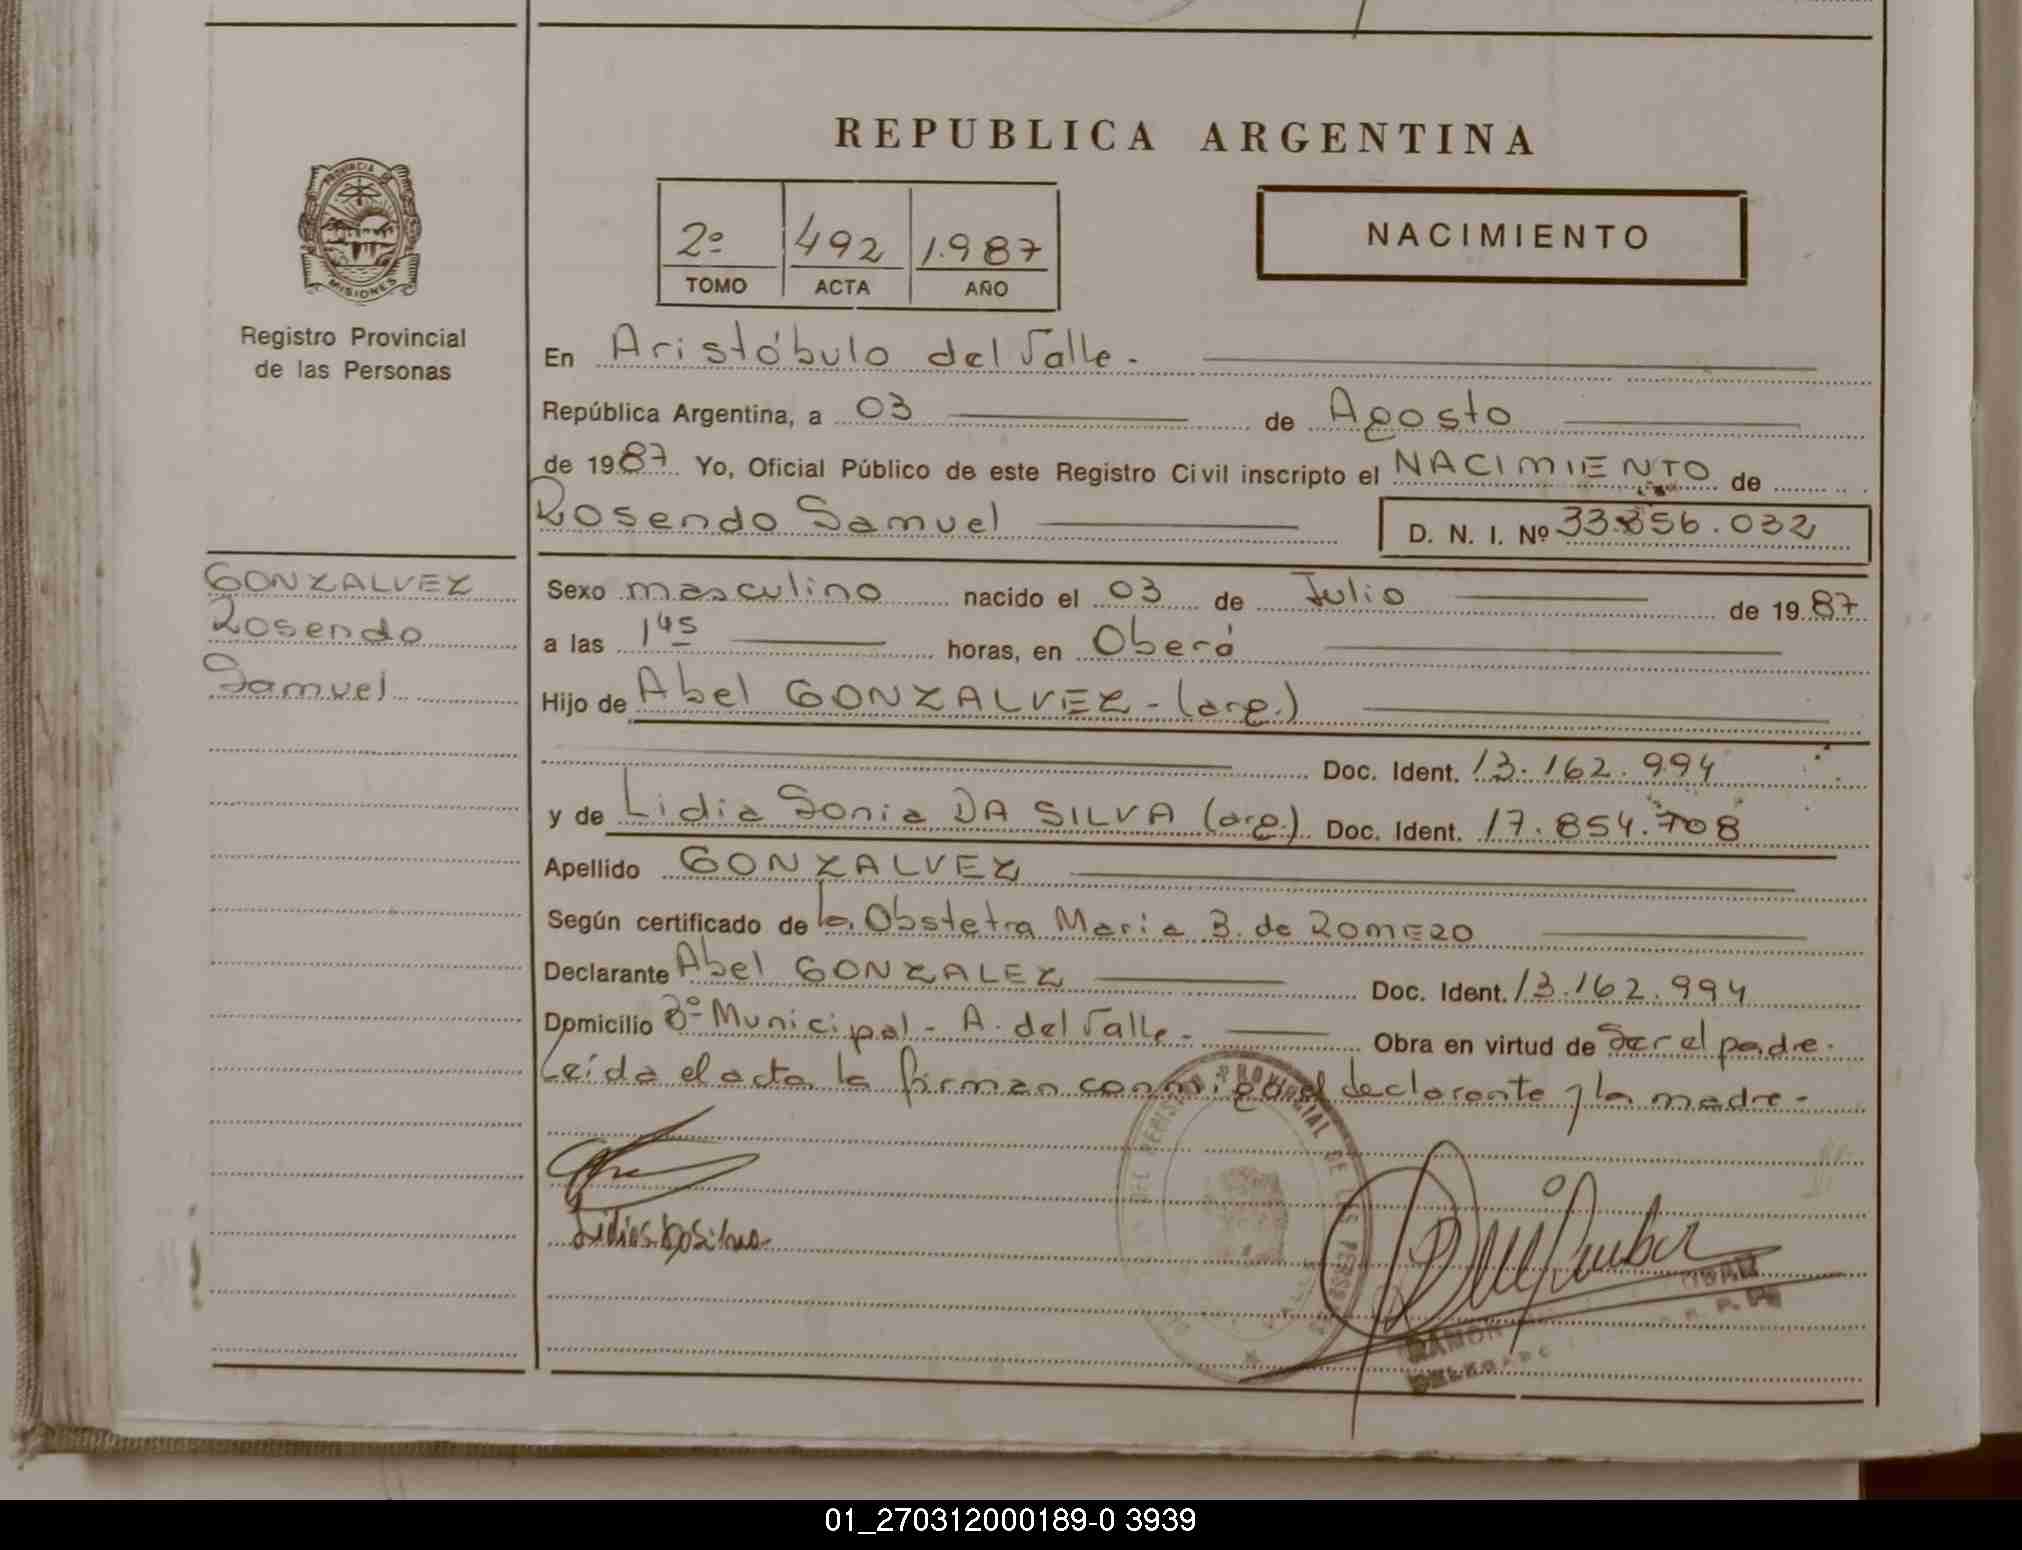 REPUBLICA ARGENTINA
PROVINCIA DE
MISIONES
Registro Provincial
de las Personas
2º 492 1.987
TOMO ACTA AÑO
NACIMIENTO
En Aristóbulo del Valle.
República Argentina, a 03 de Agosto
de 1987 Yo, Oficial Público de este Registro Civil inscripto el NACIMIENTO de
Rosendo Samuel D. N. I. Nº 33.856.032
GONZALVEZ
Rosendo
Samuel
Sexo masculino nacido el 03 de Julio de 1987
a las 1 45 horas, en Oberá
Hijo de Abel GONZALVEZ - (arg.)
Doc. Ident. 13.162.994
y de Lidia Sonia DA SILVA (arg.) Doc. Ident. 17.854.708
Apellido GONZALVEZ
Según certificado de la Obstetra Maria B. de ROMERO
Declarante Abel GONZALEZ Doc. Ident. 13.162.994
Domicilio Bº Municipal - A. del Valle - Obra en virtud de Ser el padre.
Leída el acta la firman conmigo el declarante y la madre -
PROVINCIAL DE LAS
RAMON
01_270312000189-0 3939